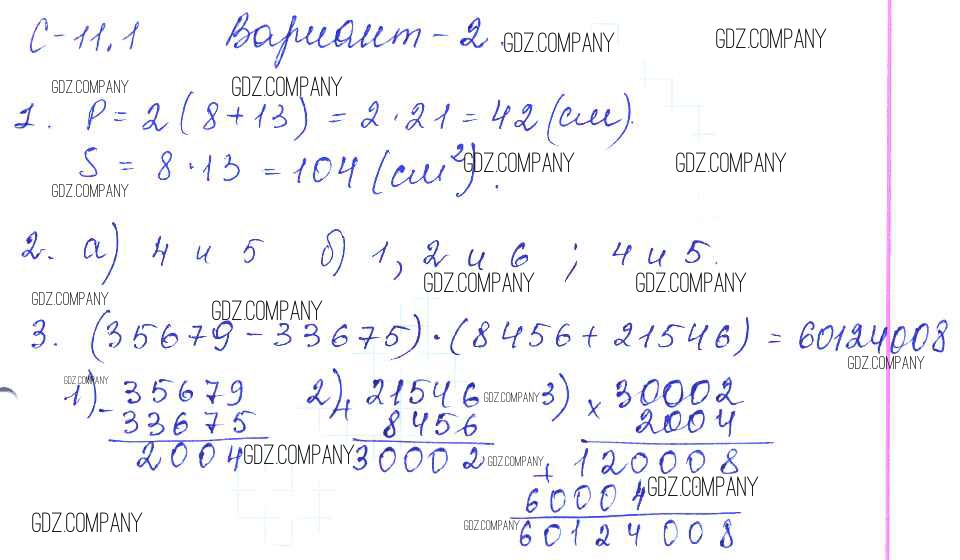 С-11.1 Вариант-2.
GDZ.COMPANY GDZ.COMPANY
GDZ.COMPANY GDZ.COMPANY
1. P = 2 (8 + 13) = 2 · 21 = 42 (см).
S = 8 · 13 = 104 (см²).
GDZ.COMPANY GDZ.COMPANY
GDZ.COMPANY
2. а) 4 и 5 б) 1, 2 и 6 ; 4 и 5.
GDZ.COMPANY GDZ.COMPANY
GDZ.COMPANY GDZ.COMPANY
3. (35679 - 33675) · (8456 + 21546) = 60124008
GDZ.COMPANY
GDZ.COMPANY GDZ.COMPANY
1) - 35679 2) + 21546 3) × 30002
33675 8456 2004
2004 30002 120008
GDZ.COMPANY GDZ.COMPANY
+ 60004
GDZ.COMPANY
60124008
GDZ.COMPANY GDZ.COMPANY